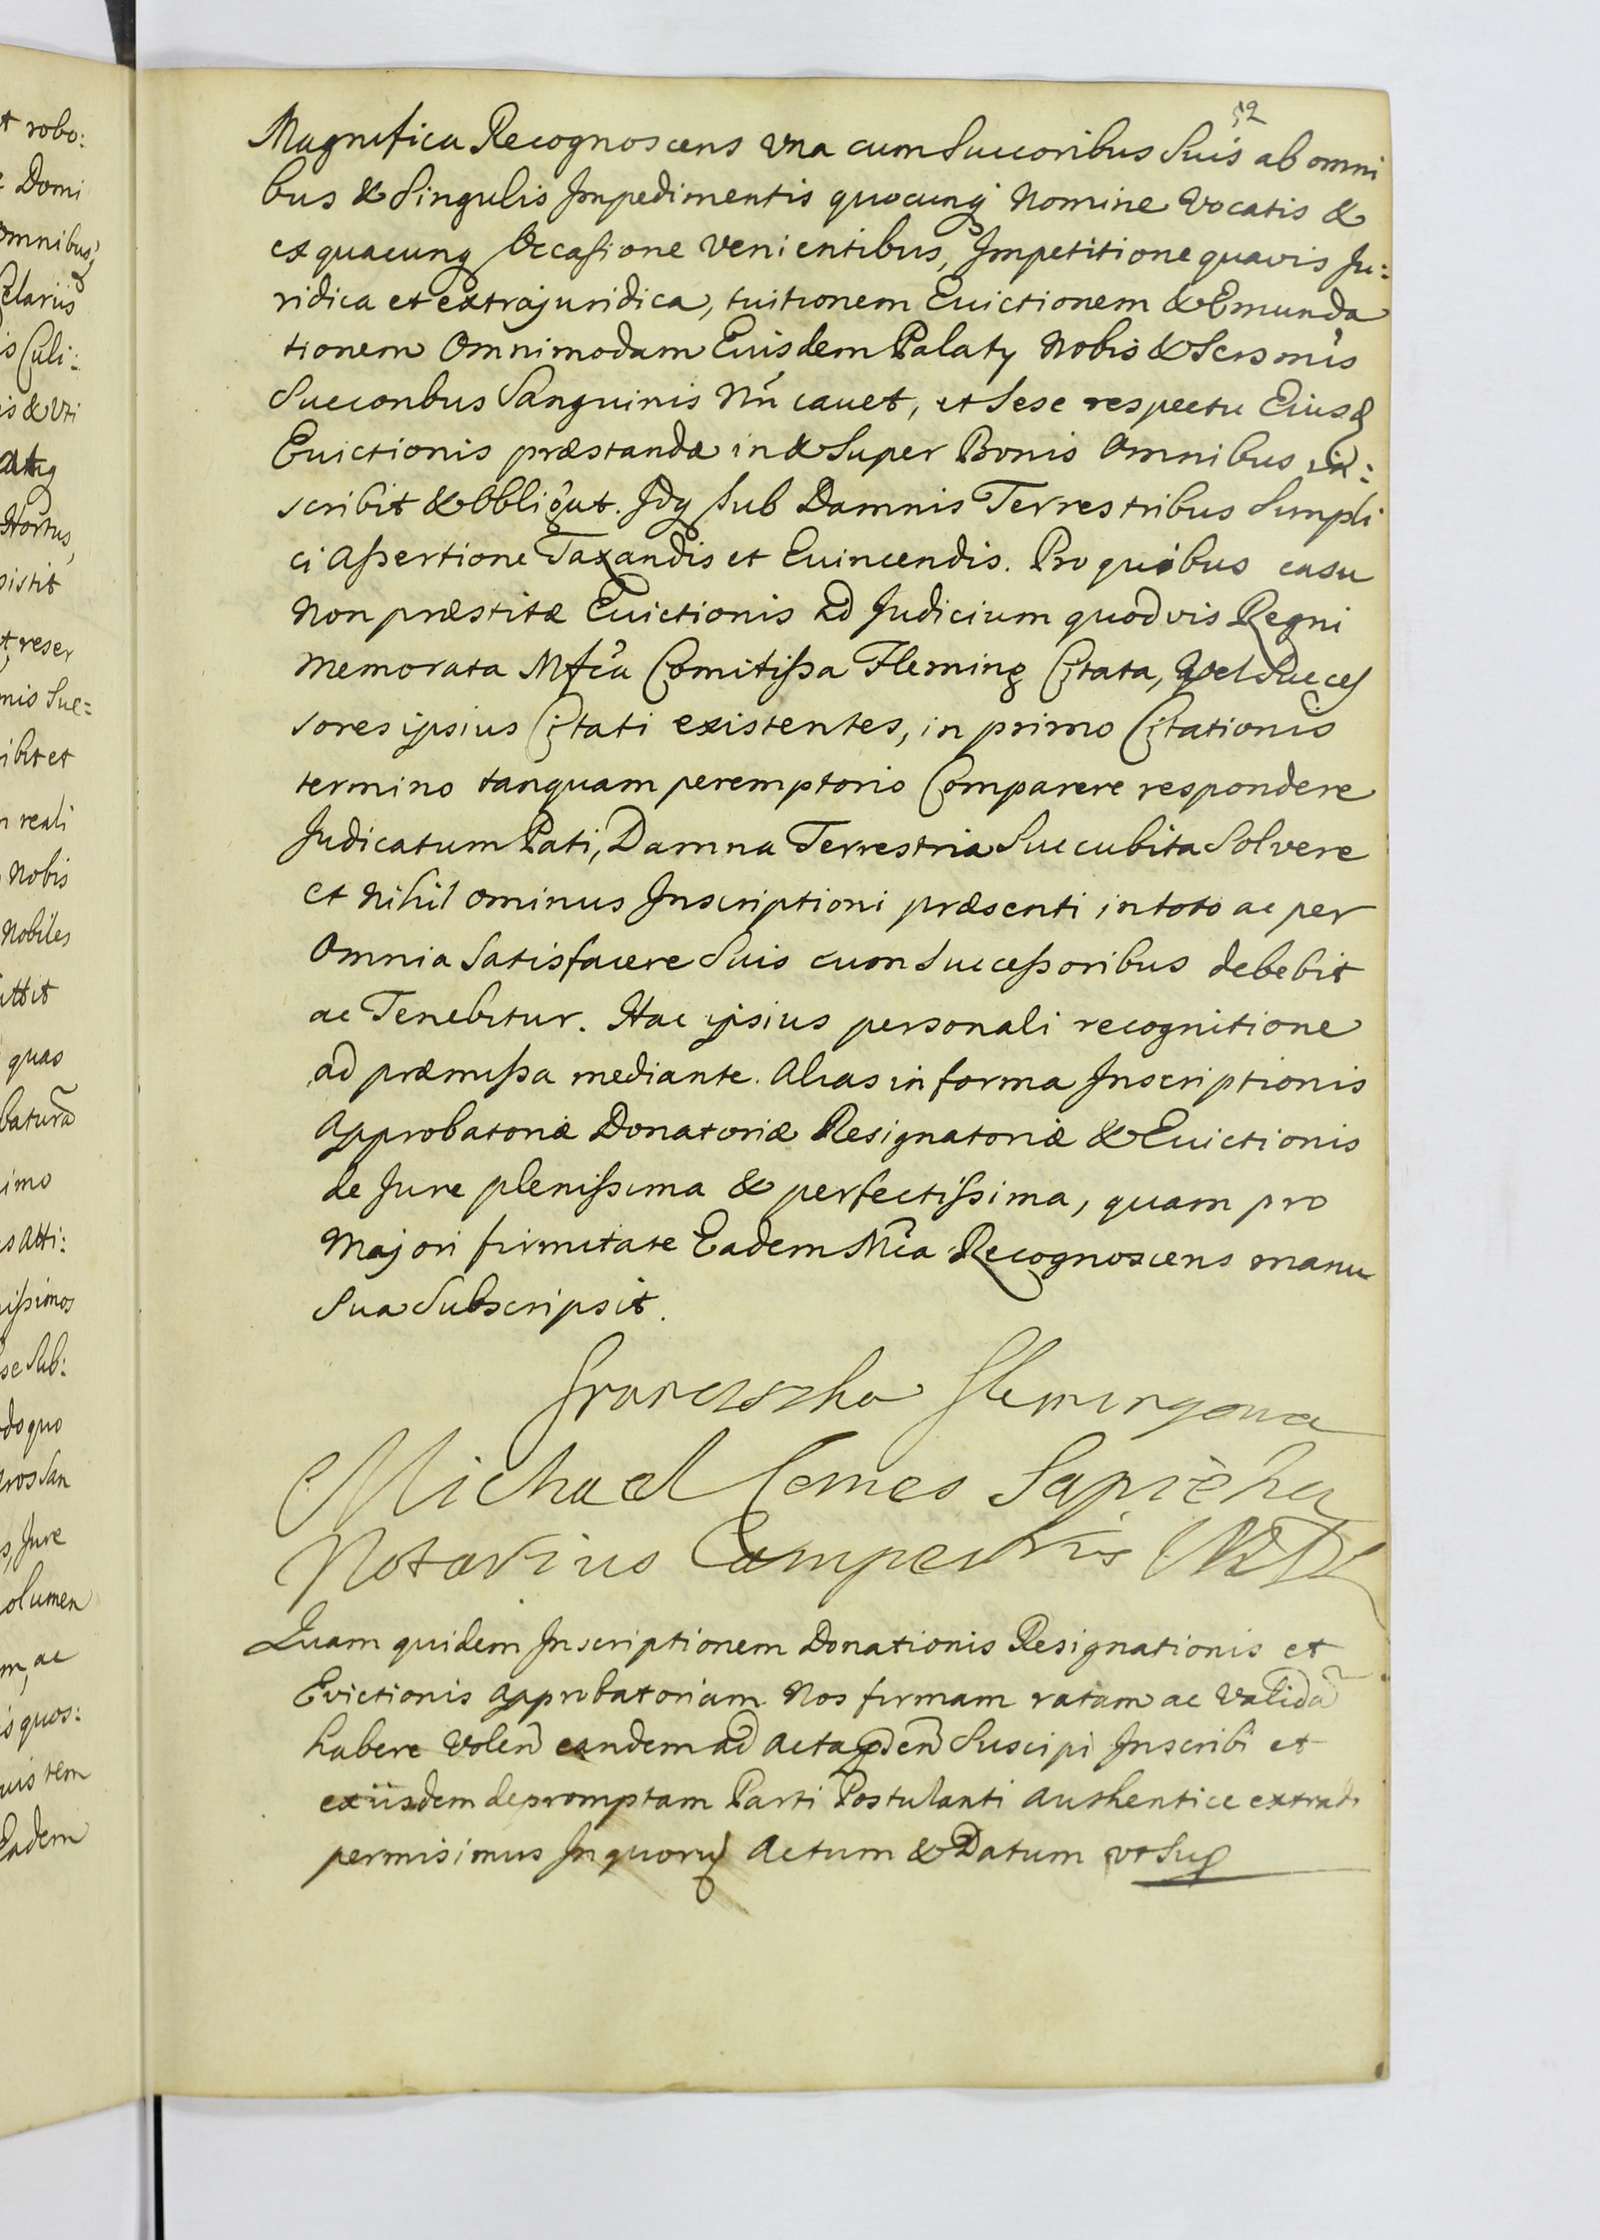 52
Magnifica Recognoscens Vna cum Succoribus Suis ab omni
bus & Singulis Impedimentis quocunq Nomine Vocatis &
ex quacunq Occasione Venientibus, Impetitione quavis Ju:
ridica et extrajuridica, tuitionem Euictionem & Emunda
tionem Omnimodam Euisdem Palaty Nobis & Serenmis
Succoribus Sanguinis Nri cauet, et Sese respectu Eiusd
Euictionis præstandæ in & Super Bonis Omnibus in:
scribit & Obbligat. Idq Sub Damnis Terrestribus Simpli
ci Assertione Taxandis et Euincendis. Pro quibus casu
Non præstitæ Euictionis ad Judicium quodvis Regni
Memorata Mfca Comitissa Fleming Citata, vel Succes
sores ipsius Citati existentes, in primo Citationis
termino tanquam peremptorio Comparere respondere
Judicatum Pati, Damna Terrestria Succubita Solvere
et Nihil ominus Inscriptioni præsenti in toto ac per
Omnia Satisfacere Suis cum Successoribus debebit
ac Tenebitur. Hac ipsius personali recognitione
ad præmissa mediante. Alias in forma Inscriptionis
Approbatoriæ Donatoriæ Resignatoriæ & Euictionis
de Jure plenissima & perfectissima, quam pro
Majori firmitate Eadem Mca Recognoscens manu
Sua Subscripsit.
Franciszka Flemingowa
Michael Comes Sapieha
Notarius Campestris MDL
Quam quidem Inscriptionem Donationis Resignationis et
Evictionis Approbatoriam Nos firmam ratam ac Validã
habere Volen eandem ad Acta pden Suscipi Inscribi et
ex iisdem depromptam Parti Postulanti Authentice extradi
permisimus In quorũ Actum & Datum vt Sup